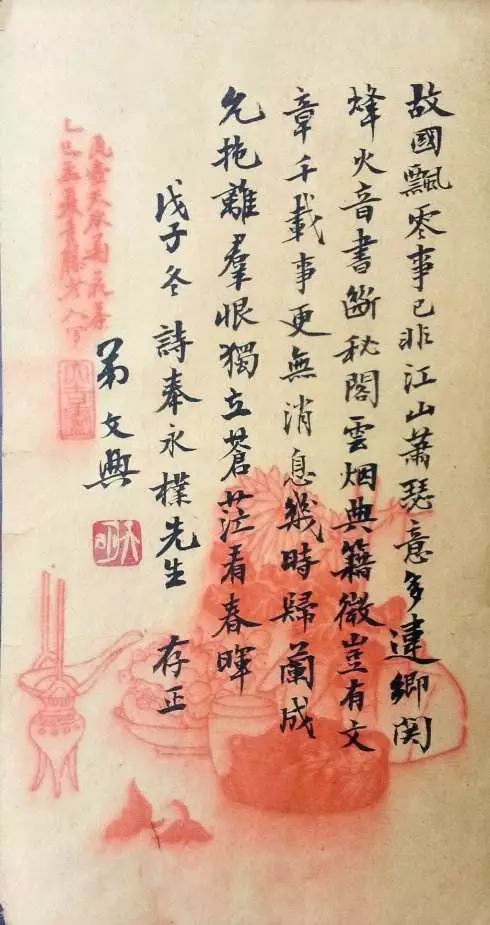 故國飄零事已非江山蕭瑟意多違鄉関
烽火音書斷秘閣雲烟典籍微豈有文
章千載事更無消息幾時歸蘭成
允抱離羣恨獨立蒼茫看春暉
戊子冬詩奉永樸先生 存正
弟文興
瓦壺天水菊花茶
乙巳